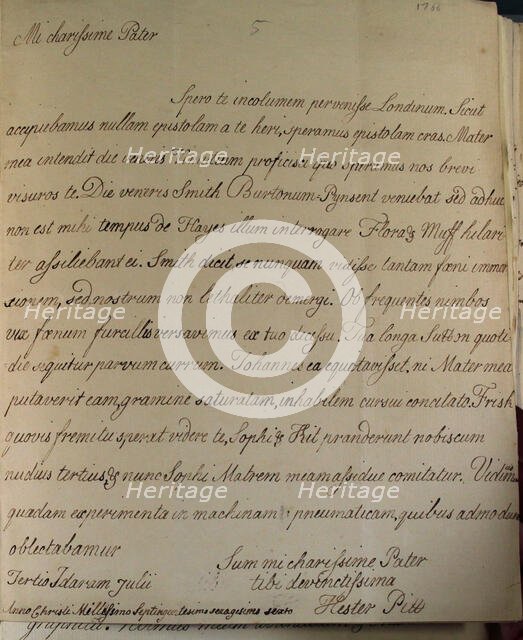 1766
5
Mi charissime Pater
Spero te incolumem pervenisse Londinum. Sicut
accipiebamus nullam epistolam a te heri, speramus epistolam cras. Mater
mea intendit die veneris proficisci quo speramus nos brevi
visuros te. Die veneris Smith Burtonum-Pynsent veniebat sed adhuc
non est mihi tempus de Hayes illum interrogare Flora & Muff hilari
ter assiliebant ei. Smith dicit, se nunquam vidisse tantam fœni immer
sionem, sed nostrum non lethaliter demergi. Ob frequentes nimbos
vix fœnum furcillis versavimus ex tuo decessu. Tua longa Sutton quoti
die sequitur parvum currum. Johannes ea equitavisset, ni Mater mea
putaverit eam, gramine saturatam, inhabilem cursui concitato. Frisk
quovis fremitu sperat videre te, Sophi & Kil pranderunt nobiscum
nudius tertius, & nunc Sophi Matrem meam assidue comitatur. Vidimus
quædam experimenta in machinam pneumaticam, quibus admodum
oblectabamur
Sum mi charissime Pater
tibi devinctissima
Hester Pitt
Tertio Idaram Julii
Anno Christi Millessimo Septingentesimo sexagesimo sexto
Heritage
Heritage
Heritage
Heritage
Heritage
Heritage
Heritage
Heritage
Heritage
C